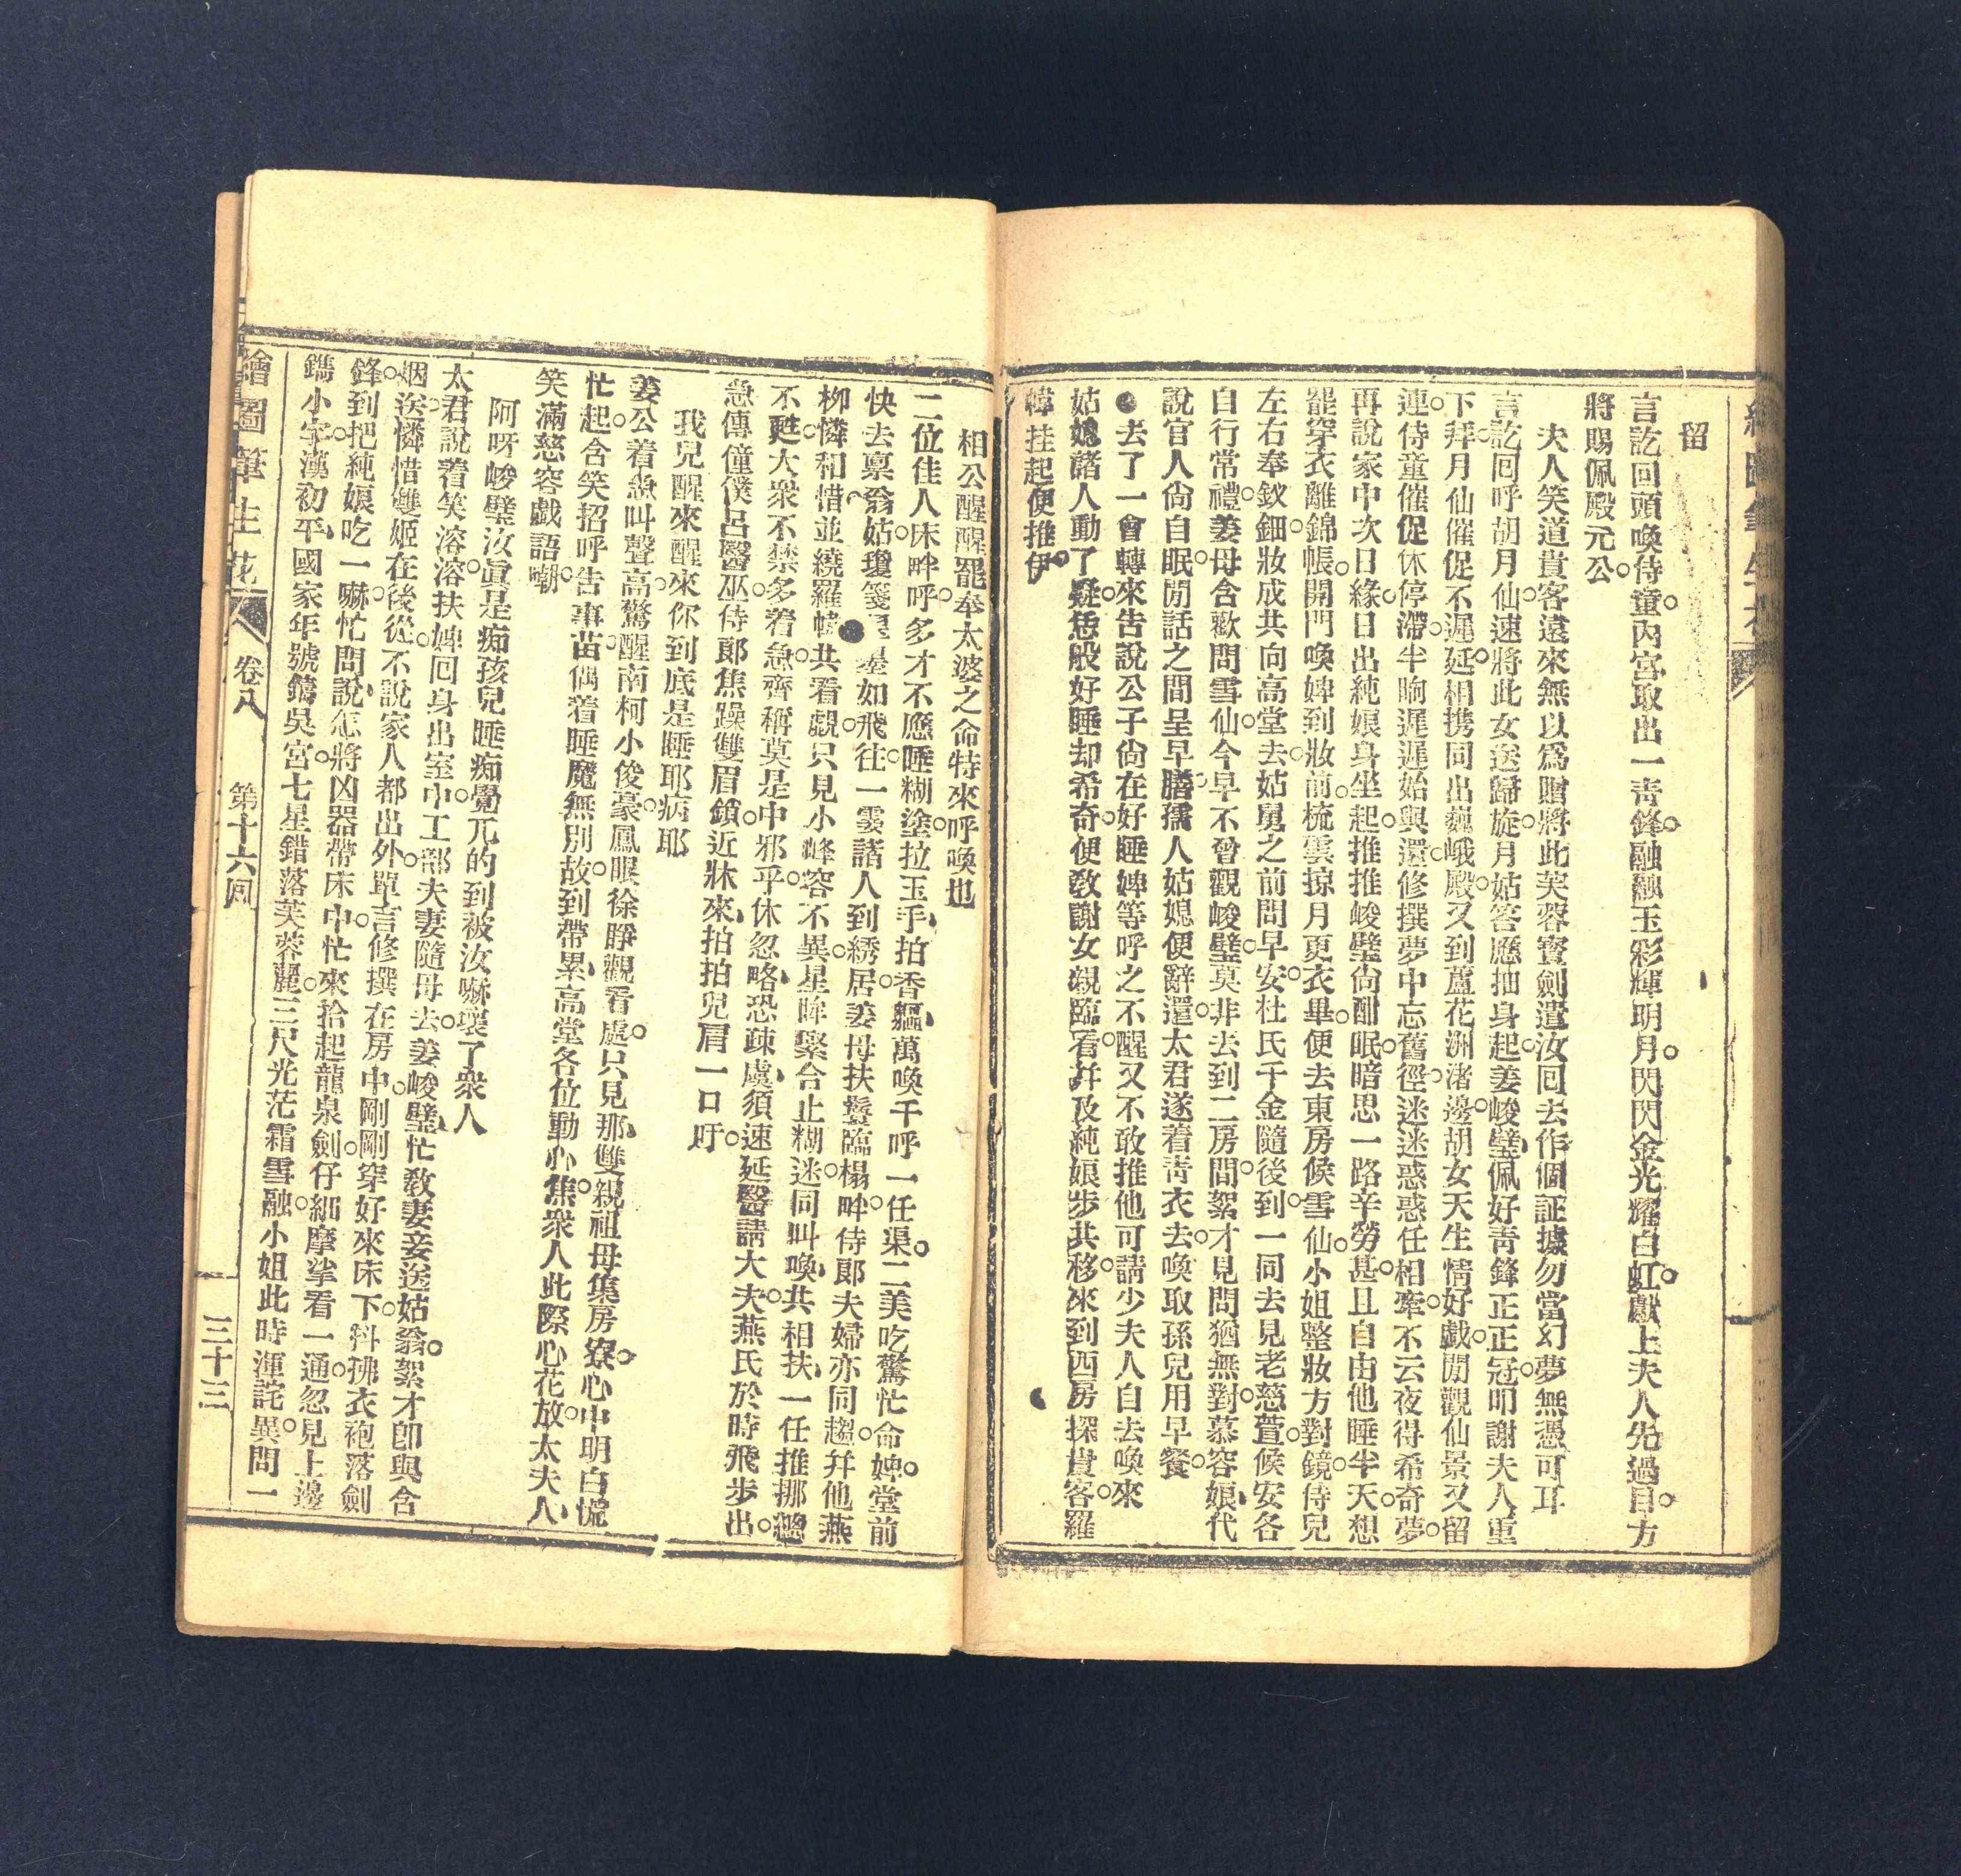 留
言訖回頭喚侍童。內宮取出一青鋒。融融玉彩輝明月。閃閃金光耀白虹。獻上夫人先過目。方
將賜佩殿元公。
夫人笑道貴客遠來無以爲贈將此芙蓉寶劍遣汝回去作個証據勿當幻夢無憑可耳
言訖回呼胡月仙。速將此女送歸旋。月姑答應抽身起。姜峻璧佩好青鋒正正冠。叩謝夫人重
下拜。月仙催促不遲延。相携同出巍峨殿。又到蘆花洲渚邊。胡女天生情好戲。閒觀仙景又留
連。侍童催促休停滯。半晌遲遲始與還。修撰夢中忘舊徑。迷迷惑惑任相牽。不云夜得希奇夢。
再說家中次日緣。日出純娘身坐起。推推峻璧尙酣眠。暗思一路辛勞甚。且自由他睡半天。想
罷穿衣離錦帳。開門喚婢到妝前。梳雲掠月更衣畢。便去東房候雪仙。小姐整妝方對鏡。侍兒
左右奉釵鈿。妝成共向高堂去。姑舅之前問早安。杜氏千金隨後到。一同去見老慈萱。候安各
自行常禮。姜母含歡問雪仙。今早不曾觀峻璧。莫非去到二房間。絮才見問猶無對。慕容娘代
說官人尙自眠。閒話之間呈早膳。孺人姑媳便辭還。太君遂着靑衣去。喚取孫兒用早餐。
去了一會轉來告說公子尙在好睡婢等呼之不醒又不敢推他可請少夫人自去喚來
姑媳諸人動了疑。恁般好睡却希奇。便敎謝女親臨看。幷及純娘步共移。來到西房探貴客。羅
幃挂起便推伊。
相公醒醒罷奉太婆之命特來呼喚也
二位佳人床畔呼。多才不應睡糊塗。拉玉手拍香軀。萬喚千呼一任渠。二美吃驚忙命婢。堂前
快去禀翁姑。瓊箋星如飛往。一霎諸人到綉居。姜母扶鬟臨榻畔。侍郎夫婦亦同趨。幷他燕
柳憐和惜。並繞羅幃共看覷。只見小峰容不異。星眸緊合止糊迷。同叫喚共相扶。一任推挪總
不甦。大衆不禁多着急。齊稱莫是中邪乎。休忽略恐疎虞。須速延醫請大夫。燕氏於時飛步出。
急傳僮僕呂醫巫。侍郎焦躁雙眉鎖。近牀來拍拍兒肩一口吁。
我兒醒來醒來你到底是睡耶病耶
姜公着急叫聲高。驚醒南柯小俊豪。鳳眼徐睜觀看處。只見那雙親祖母集房寮。心中明白慌
忙起。含笑招呼告事苗。偶着睡魔無別故。到帶累高堂各位動心焦。衆人此際心花放。太夫人
笑滿慈容戲語嘲。
阿呀峻璧汝眞是痴孩兒睡痴覺兀的到被汝嚇壞了衆人
太君說着笑溶溶。扶婢回身出室中。工部夫妻隨母去。姜峻璧忙敎妻妾送姑翁。絮才卽與含
烟送。憐惜雙姬在後從。不說家人都出外。單言修撰在房中。剛剛穿好來床下。抖拂衣袍落劍
鋒。到把純娘吃一嚇。忙問說怎將凶器帶床中。忙來拾起龍泉劍。仔細摩挲看一通。忽見上邊
鐫小字。漢初平國家年號鑄吳宮。七星錯落芙蓉麗。三尺光芒霜雪融。小姐此時渾詫異。問一
繪圖筆生花 卷八 第十六回 三十三